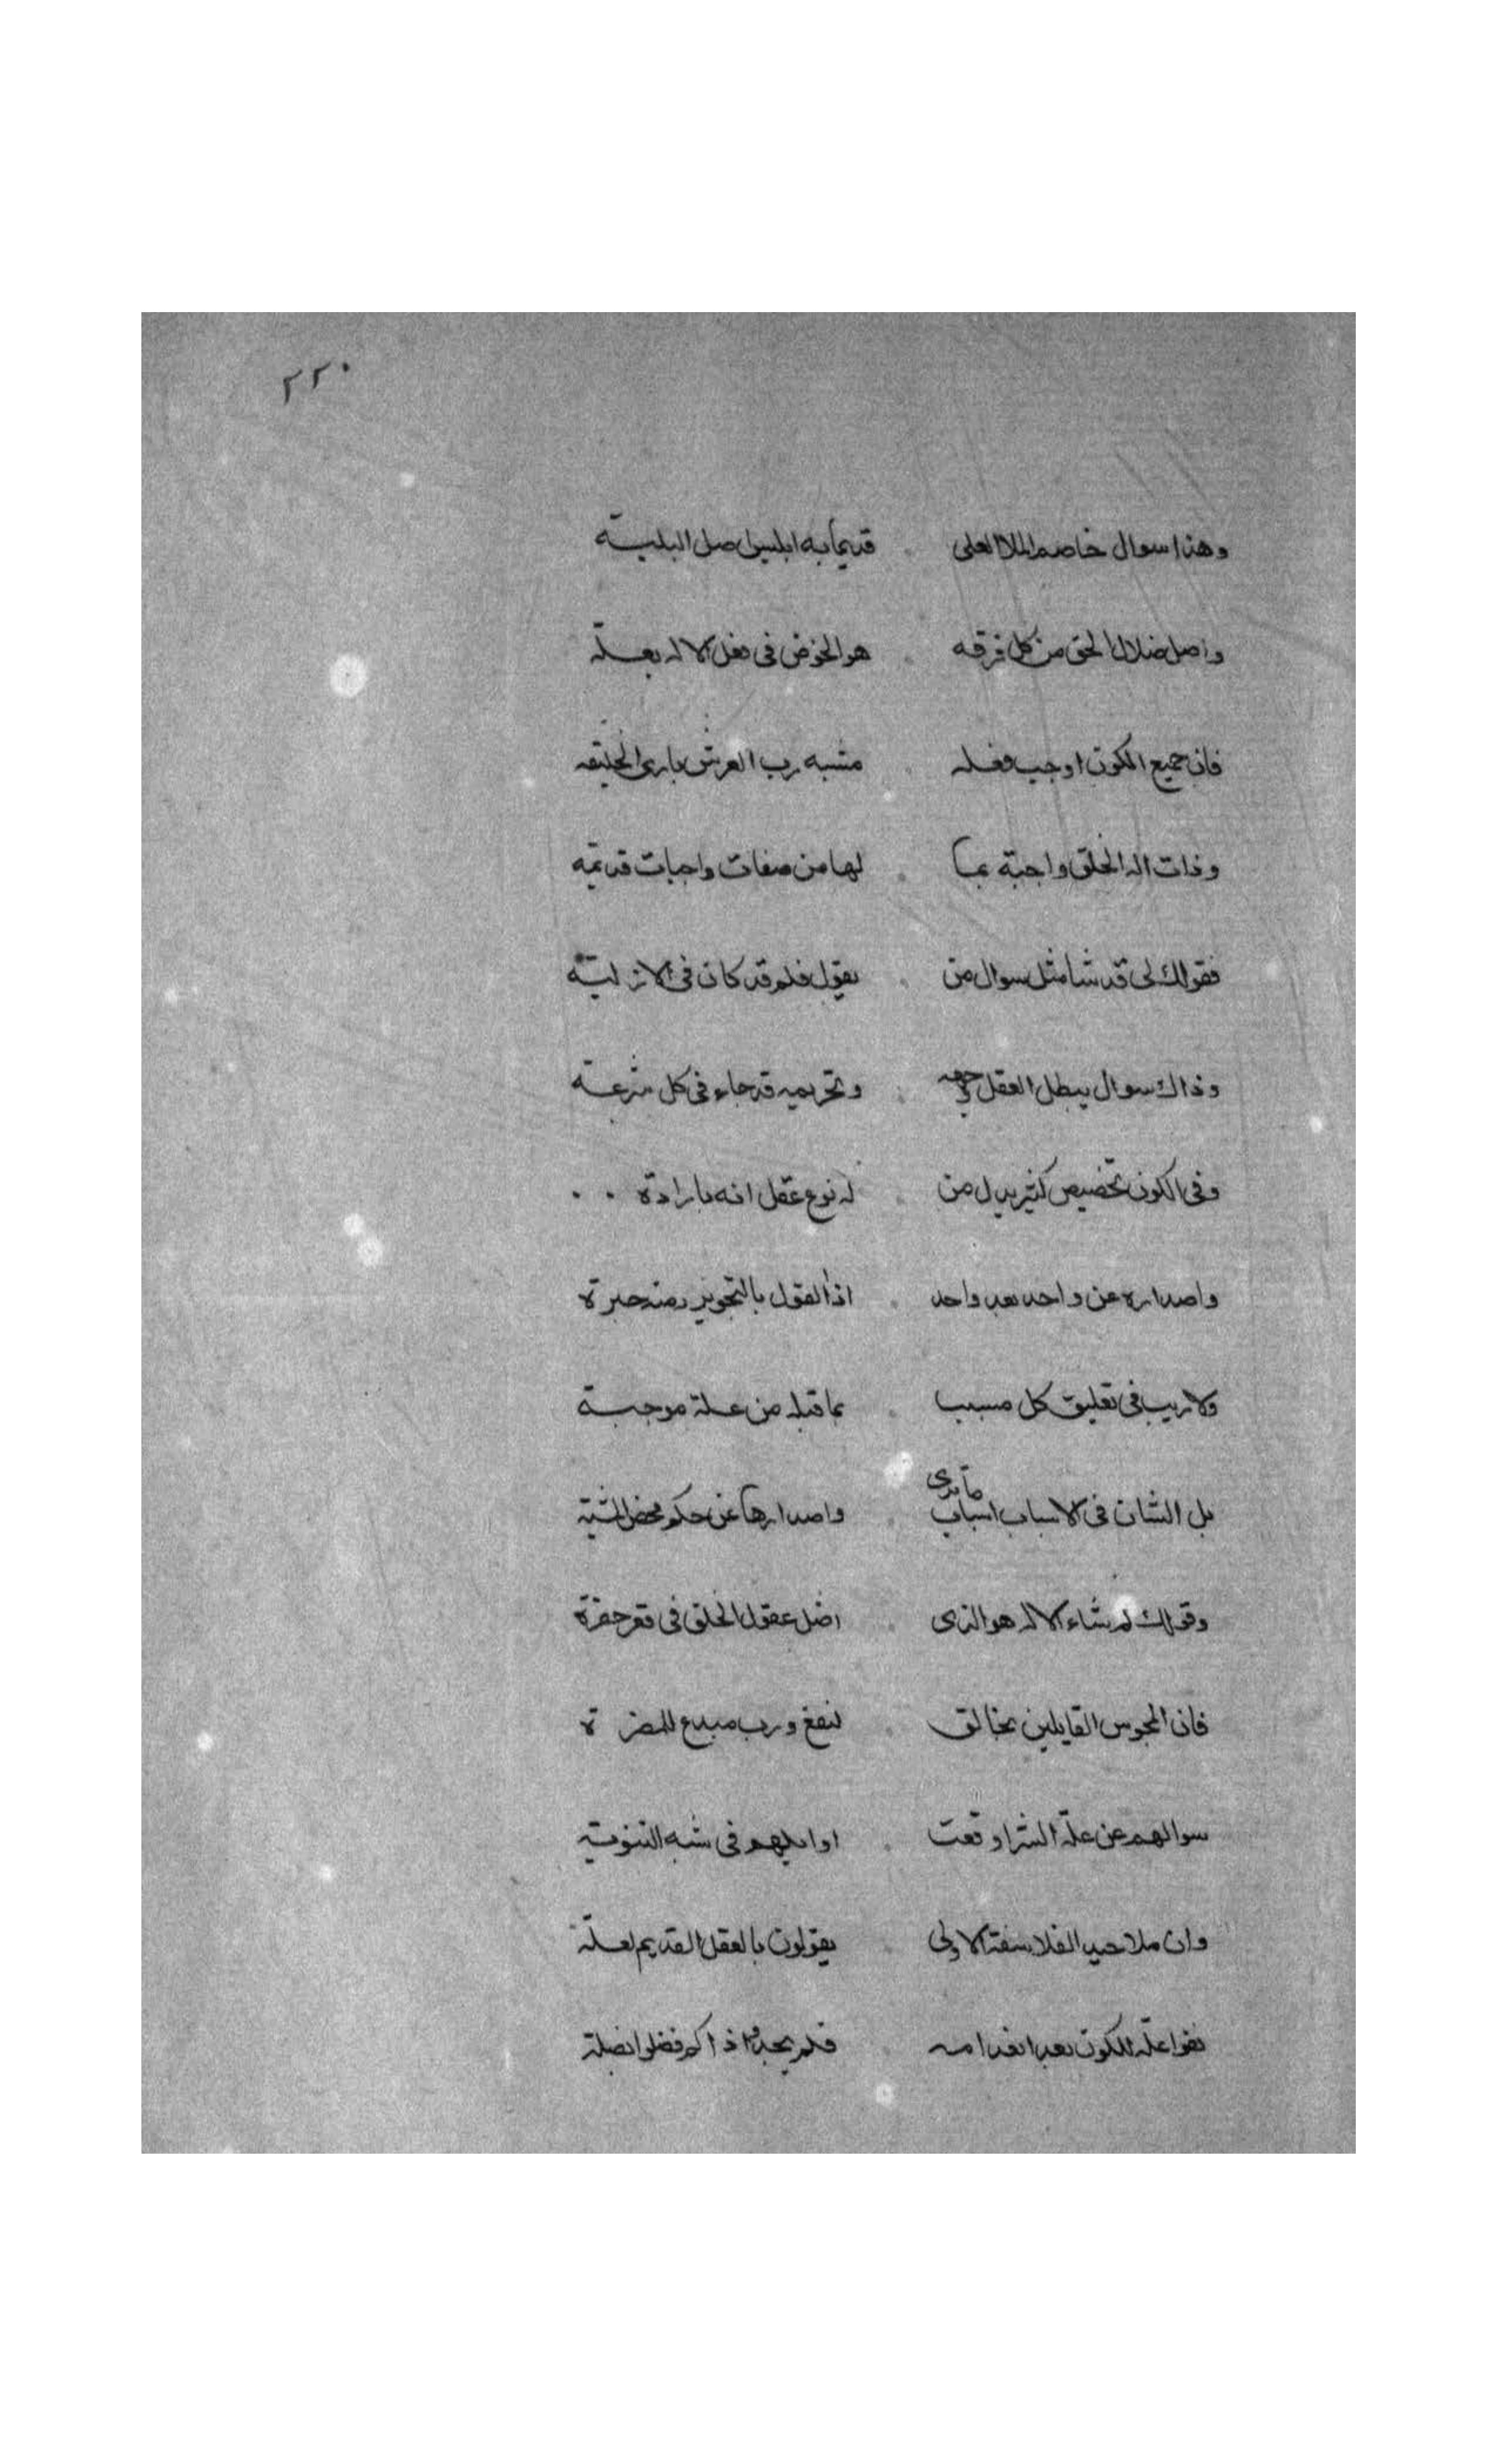 ٢٢٠
وهذا سوال خاصم الملا العلى . قديما به ابليس اصل البليّة
واصل ضلال الخق من كل فرقه . هو الخوض فى فعل الاله بعلّه
فان جميع الكون اوجب فعله . مشبه رب العرش بارى الخليقه
وذات اله الخلق واجبة بما . لها من صفات واجبات قديمه
فقولك لى قد شا مثل سوال من . يقول فلم قد كان فى الازليّة
وذاك سوال يبطل العقل وجهه . وتحريمه قد جاء فى كل شرعة
وفى الكون تخصيص كثير يدل من . له نوع عقل انه بارادة . .
واصداره عن واحد بعد واحد . اذا القول بالتجويز حيرة
ولا ريب فى تعليق كل مسبب . بما قبله من علة موجبة
بل الشان فى الاسباب اسباب ما ترى . واصدارها عن حكم محض المشية
وقولك لم شاء الاله هو الذى . اضل عقول الخلق فى قعر حفرة
فان المجوس القايلين بخالق . لنفع ورب مبدع للمضرة
سوالهم عن علّة الشر اوقعت . اوايلهم فى شبه الثنوية
وان ملاحيد الفلاسفة الاولى . يقولون بالعقل القديم لعلّة
بغوا علّة للكون بعد انعدامه . فلم يجدوا ذاكم فضلوا بضلة